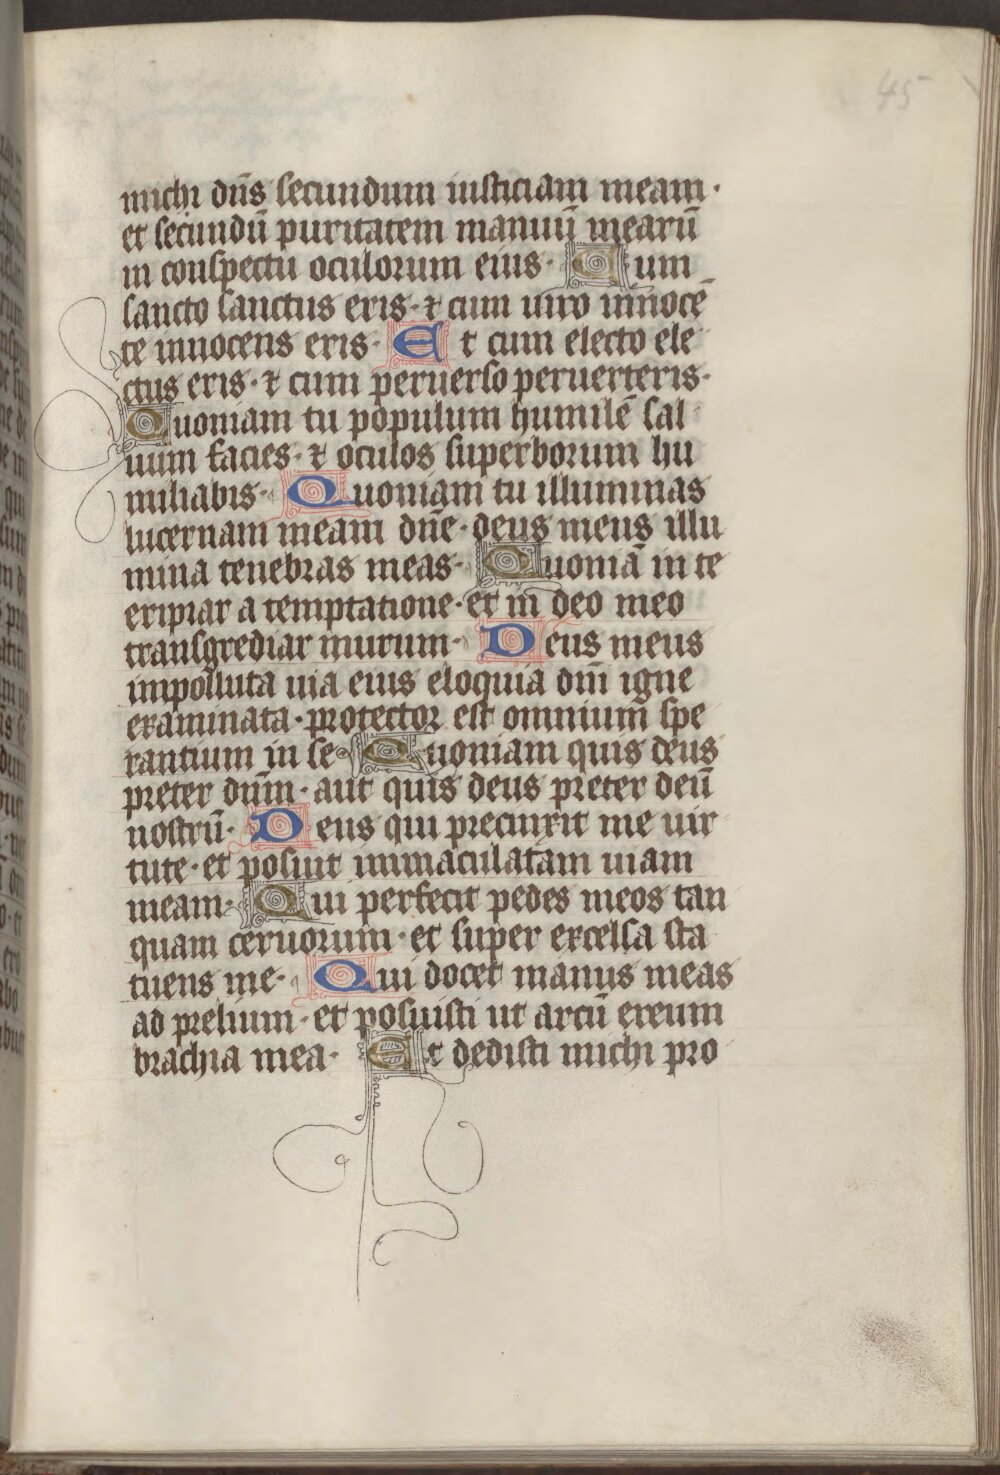 45
michi dn̄s secundum iusticiam meam·
et secundū puritatem manuū mearū
in conspectu oculorum eius· Cum
sancto sanctus eris· ⁊ cum uiro innocē
te innocens eris· Et cum electo ele
ctus eris· ⁊ cum peruerso peruerteris·
Quoniam tu populum humilē sal
uum facies· ⁊ oculos superborum hu
miliabis· Quoniam tu illuminas
lucernam meam dn̄e· deus meus illu
mina tenebras meas· Quoniā in te
eripiar a temptatione· et in deo meo
transgrediar murum· Deus meus
impolluta uia eius eloquia dn̄i igne
examinata· protector est omnium spe
rantium in se Quoniam quis deus
preter dn̄m· aut quis deus preter deū
nostrū· Deus qui precinxit me uir
tute· et posuit immaculatam uiam
meam· Qui perfecit pedes meos tan
quam ceruorum· et super excelsa sta
tuens me· Qui docet manus meas
ad prelium· et posuisti ut arcū ereum
brachia mea· Et dedisti michi pro